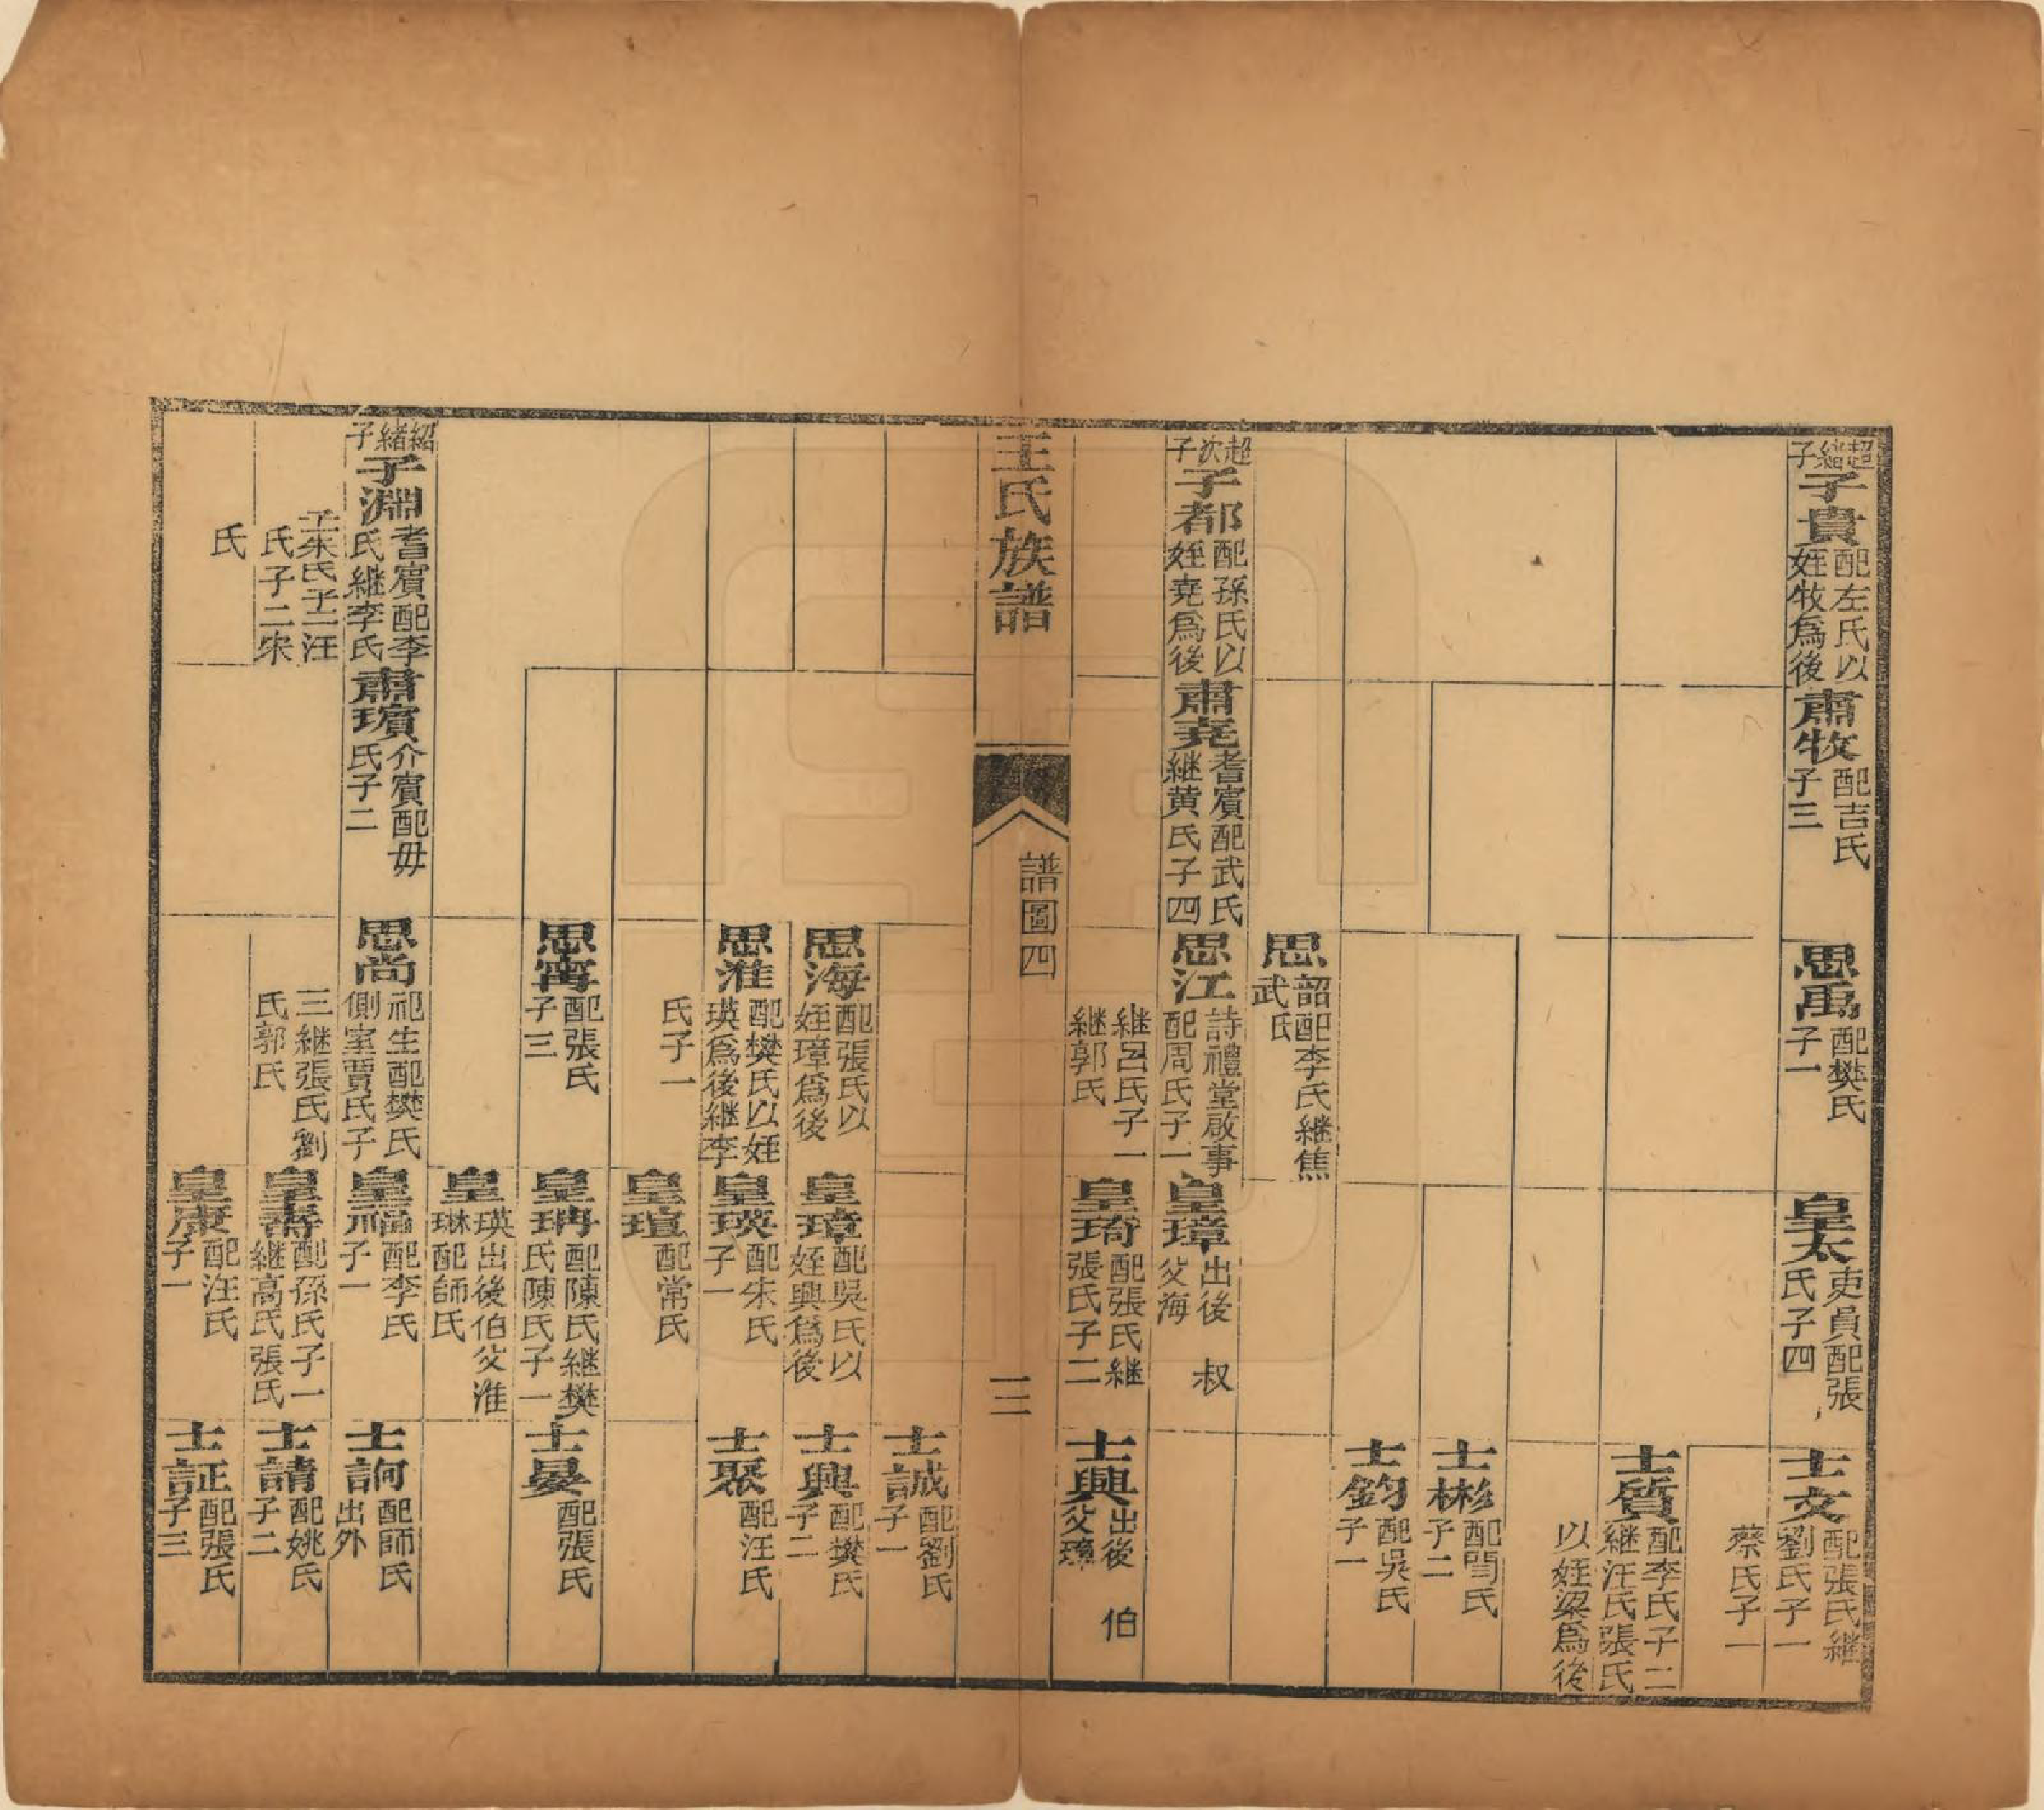 超繼子
子貴 配左氏以姪牧爲後
肅牧 配吉氏子三
思禹 配樊氏子一
皇太 吏員配張氏子四
士文 配張氏繼劉氏子一
蔡氏子一
士質 配李氏子二繼汪氏張氏
以姪梁爲後
士彬 配閆氏子二
士鈞 配吳氏子一
思韶 配李氏繼焦武氏
超次子
子都 配孫氏以姪堯爲後
肅堯 耆賓配武氏繼黄氏子四
思江 詩禮堂啟事配周氏子一
皇璋 出後叔父海
繼呂氏子一繼郭氏
皇琦 配張氏繼張氏子二
士興 出後伯父璋
王氏族譜
譜圖四
三
士誠 配劉氏子一
思海 配張氏以姪璋爲後
皇璋 配吳氏以姪興爲後
士興 配樊氏子二
思淮 配樊氏以姪瑛爲後繼李
氏子一
皇瑛 配朱氏子一
士聚 配汪氏
皇瑄 配常氏
思甯 配張氏子三
皇珃 配陳氏繼樊氏陳氏子一
士晏 配張氏
皇瑛 出後伯父淮
琳 配師氏
紹緒子
子淵 耆賓配李氏繼李氏
子一朱氏子一汪氏子二宋
氏
肅璸 介賓配毋氏子二
思尚 祀生配樊氏側室賈氏子
三繼張氏劉氏郭氏
皇福 配李氏子一
士訶 配師氏出外
皇壽 配孫氏子一繼高氏張氏
士請 配姚氏子二
皇康 配汪氏子一
士証 配張氏子三